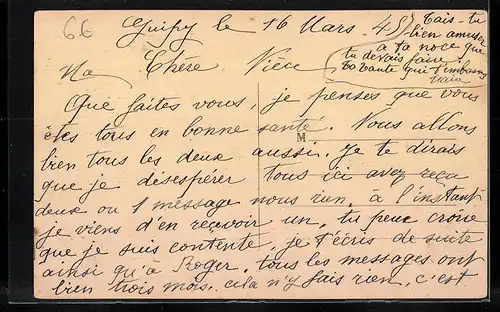 66
Guipy le 16 Mars 45
Ma Chère Nièce
Que faites vous, je penses que vous
êtes tous en bonne santé. Nous allons
M
bien tous les deux aussi. Je te dirais
que je désespérer tous ici avez reçu
deux ou 1 message nous rien, à l'instant
je viens d'en recevoir un, tu peux croire
que je suis contente, je t'écris de suite
ainsi qu'à Roger, tous les messages ont
bien trois mois. cela n'y fais rien, c'est
tu
bien amuser
a ta noce que
tu devais faire.
Ta tante qui t'embrasse